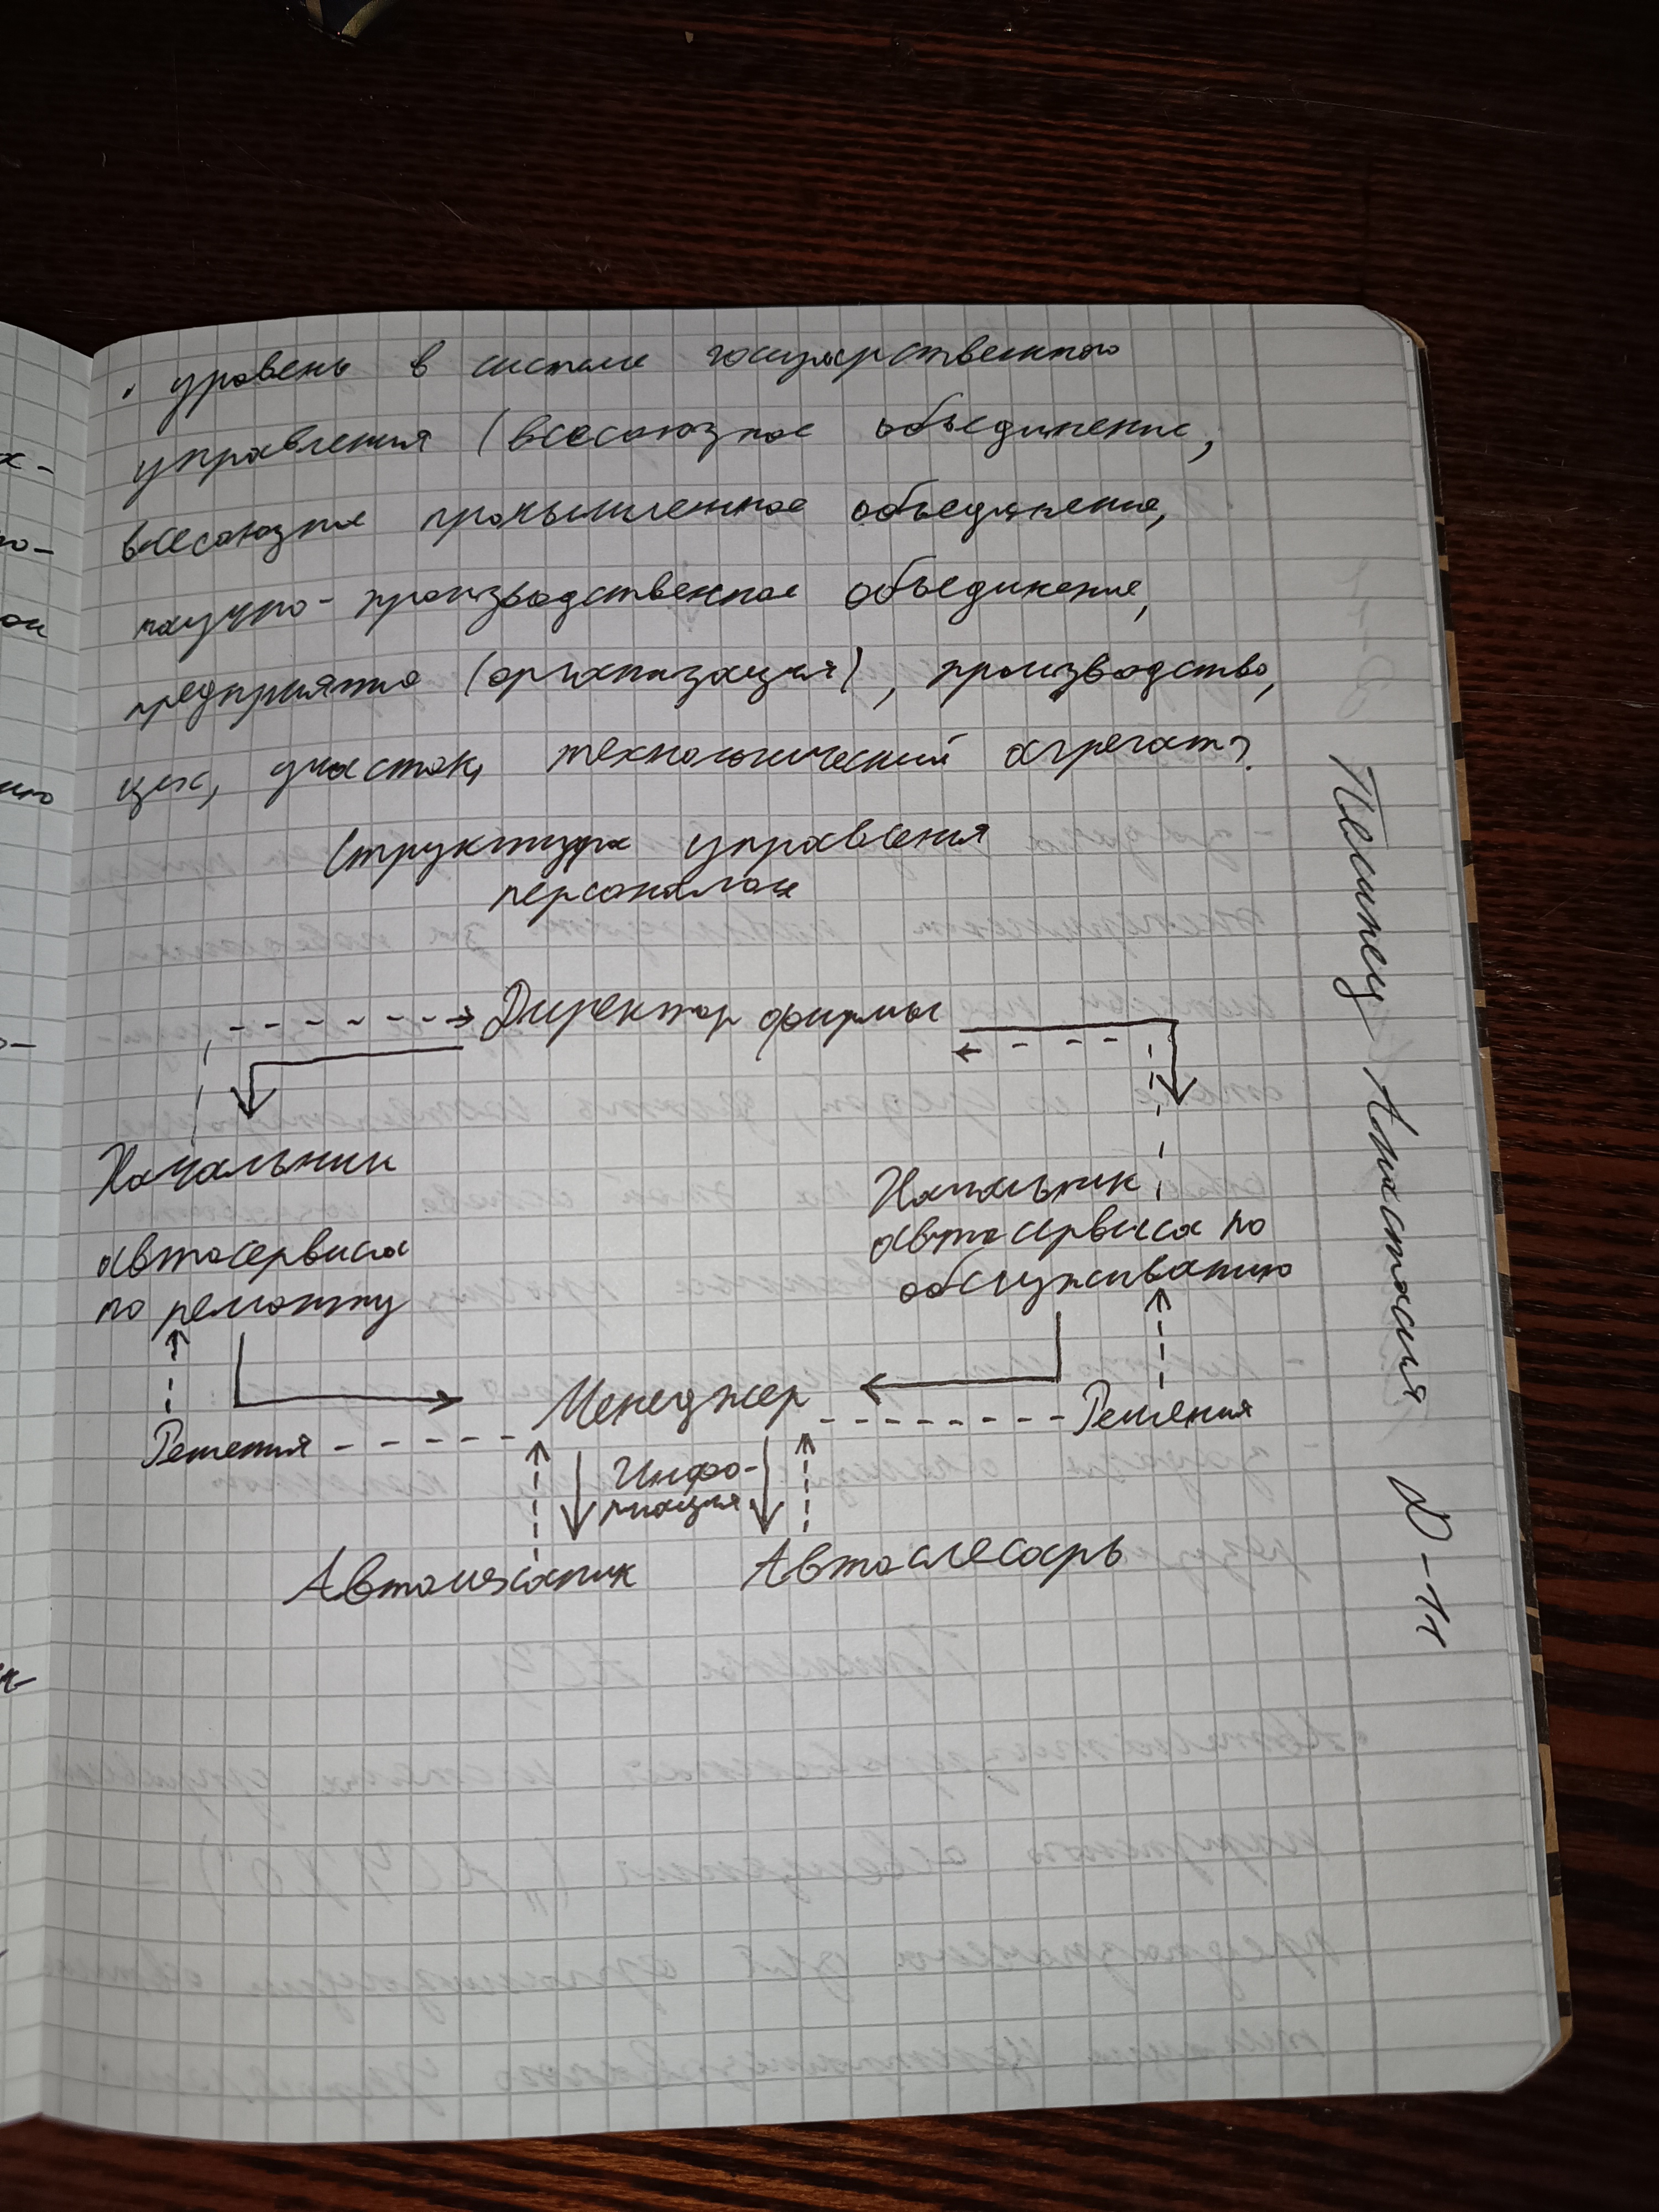 • уровень в системе государственного
управления (всесоюзное объединение,
всесоюзное промышленное объединение,
научно-производственное объединение,
предприятие (организация), производство,
цех, участок, технологический агрегат).
Структура управления
персоналом
Директор фирмы
Начальник
автосервиса
по ремонту
Начальник
автосервиса по
обслуживанию
Менеджер
Решения
Решения
Инфо-
рмация
Автомеханик
Автослесарь
Анастасия